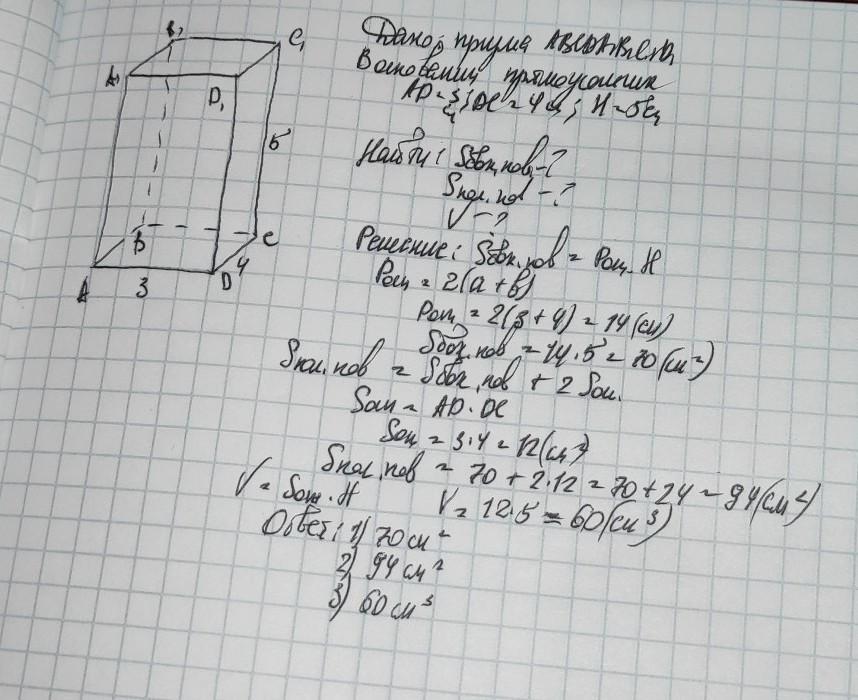 B₁
C₁
A₁
D₁
5
B
C
4
A
3
D
Дано: призма ABCDA₁B₁C₁D₁
В основании прямоугольник
AD = 3 ; DC = 4 см ; H = 5 см
Найти: Sбок.пов - ?
Sпол.пов - ?
V - ?
Решение: Sбок.пов = Pосн. H
Pосн = 2(a + b)
Pосн = 2(3 + 4) = 14 (см)
Sбок.пов = 14 · 5 = 70 (см²)
Sпол.пов = Sбок.пов + 2 Sосн.
Sосн = AD · DC
Sосн = 3 · 4 = 12 (см²)
Sпол.пов = 70 + 2 · 12 = 70 + 24 = 94 (см²)
V = Sосн. H V = 12 · 5 = 60 (см³)
Ответ: 1) 70 см²
2) 94 см²
3) 60 см³